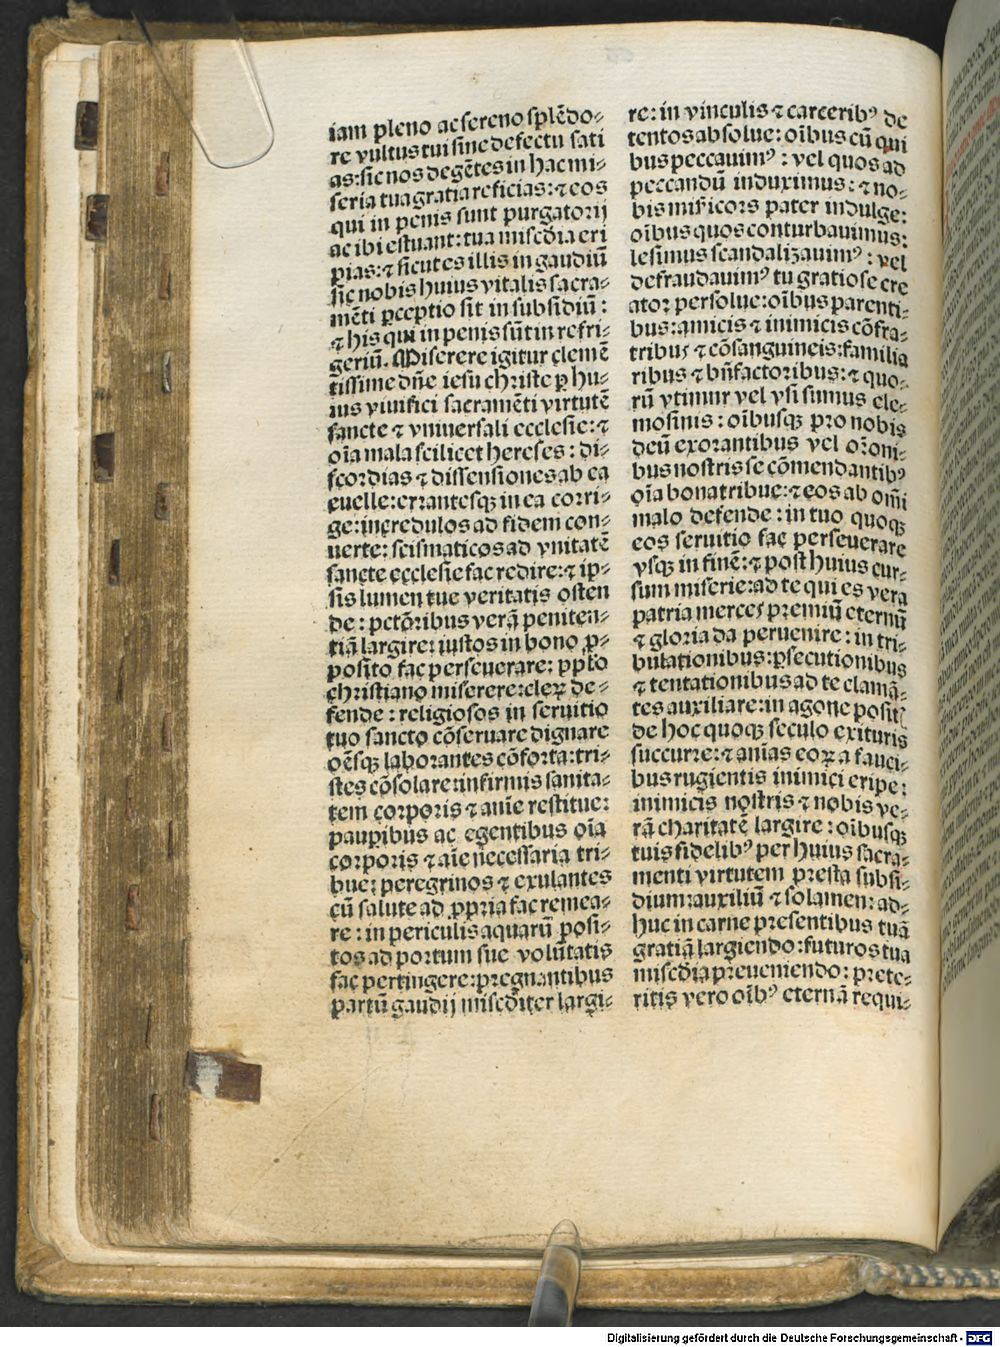 iam pleno ac sereno splẽdo⸗
re vultus tui sine defectu sati
as: sic nos degẽtes in hac mi⸗
seria tua gratia reficias: ⁊ eos
qui in penis sunt purgatorij
ac ibi estuant: tua misc̃dia eri
pias: ⁊ sicut es illis in gaudiũ
sic nobis huius vitalis sacra⸗
mẽti ꝑceptio sit in subsidiũ:
⁊ his qui in penis sũt in refri⸗
geriũ. Miserere igitur clemẽ
tissime dñe iesu christe ꝑ hu⸗
ius viuifici sacramẽti virtutẽ
sancte ⁊ vniuersali ecclesie: ⁊
oĩa mala scilicet hereses: di⸗
scordias ⁊ dissensiones ab ea
euelle: errantesqꝫ in ea corri⸗
ge: incredulos ad fidem con⸗
uerte: scismaticos ad vnitatẽ
sancte ecclesie fac redire: ⁊ ip⸗
sis lumen tue veritatis osten
de: pctõribus verã peniten⸗
tiã largire: iustos in bono ꝓ⸗
posito fac perseuerare: pplo
christiano miserere: cleꝝ de⸗
fende: religiosos in seruitio
tuo sancto cõseruare dignare
oẽsqꝫ laborantes cõforta: tri⸗
stes cõsolare: infirmis sanita⸗
tem corporis ⁊ anĩe restitue:
pauꝑibus ac egentibus oĩa
corporis ⁊ aĩe necessaria tri⸗
bue: peregrinos ⁊ exulantes
cũ salute ad ꝓpria fac remea⸗
re: in periculis aquarũ posi⸗
tos ad portum sue volũtatis
fac pertingere: pregnantibus
partũ gaudij misc̃diter largi⸗
re: in vinculis ⁊ carceribꝰ de
tentos absolue: oĩbus cũ qui
bus peccauimꝰ: vel quos ad
peccandũ induximus: ⁊ no⸗
bis misericors pater indulge:
oĩbus quos conturbauimus:
lesimus scandalizauimꝰ: vel
defraudauimꝰ tu gratiose cre
ator persolue: oĩbus parenti⸗
bus: amicis ⁊ inimicis cõfra⸗
tribus ⁊ cõsanguineis: familia
ribus ⁊ bñfactoribus: ⁊ quo⸗
rũ vtimur vel vsi sumus ele⸗
mosinis: oĩbusqꝫ pro nobis
deũ exorantibus vel orõni⸗
bus nostris se cõmendantibꝰ
oĩa bona tribue: ⁊ eos ab om̃i
malo defende: in tuo quoqꝫ
eos seruitio fac perseuerare
vsqꝫ in finẽ: ⁊ post huius cur⸗
sum miserie: ad te qui es vera
patria merces premiũ eternũ
⁊ gloria da peruenire: in tri⸗
bulationibus: ꝑsecutionibus
⁊ tentationibus ad te clamã⸗
tes auxiliare: in agone positĩ
de hoc quoqꝫ seculo exituris
succurre: ⁊ anĩas eoꝝ a fauci⸗
bus rugientis inimici eripe:
inimicis nostris ⁊ nobis ve⸗
rã charitatẽ largire: oĩbusqꝫ
tuis fidelibꝰ per huius sacra⸗
menti virtutem presta subsi⸗
dium: auxiliũ ⁊ solamen: ad⸗
huc in carne presentibus tuã
gratiã largiendo: futuros tua
misc̃dia preueniendo: prete⸗
ritis vero oĩbꝰ eternã requi⸗
Digitalisierung gefördert durch die Deutsche Forschungsgemeinschaft - DFG